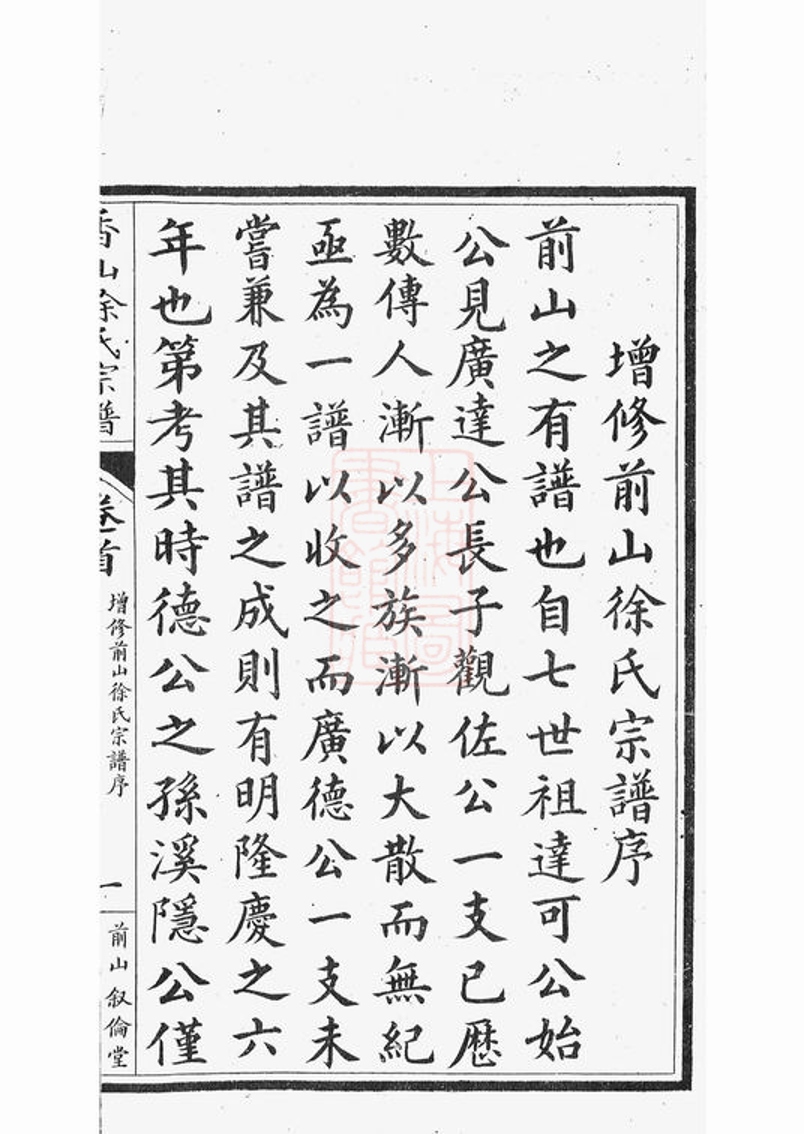 增修前山徐氏宗譜序
前山之有譜也自七世祖達可公始
公見廣達公長子觀佐公一支已歷
數傳人漸以多族漸以大散而無紀
亟為一譜以收之而廣德公一支未
嘗兼及其譜之成則有明隆慶之六
年也第考其時德公之孫溪隱公僅
香山徐氏宗譜
卷首
增修前山徐氏宗譜序
一
前山敘倫堂
上海圖書館藏